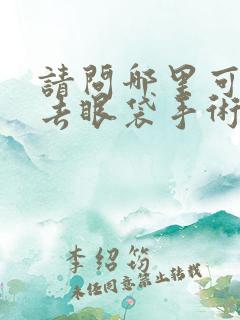 請問哪里可
去眼袋手術
李紹筠
未任同意禁止轉載